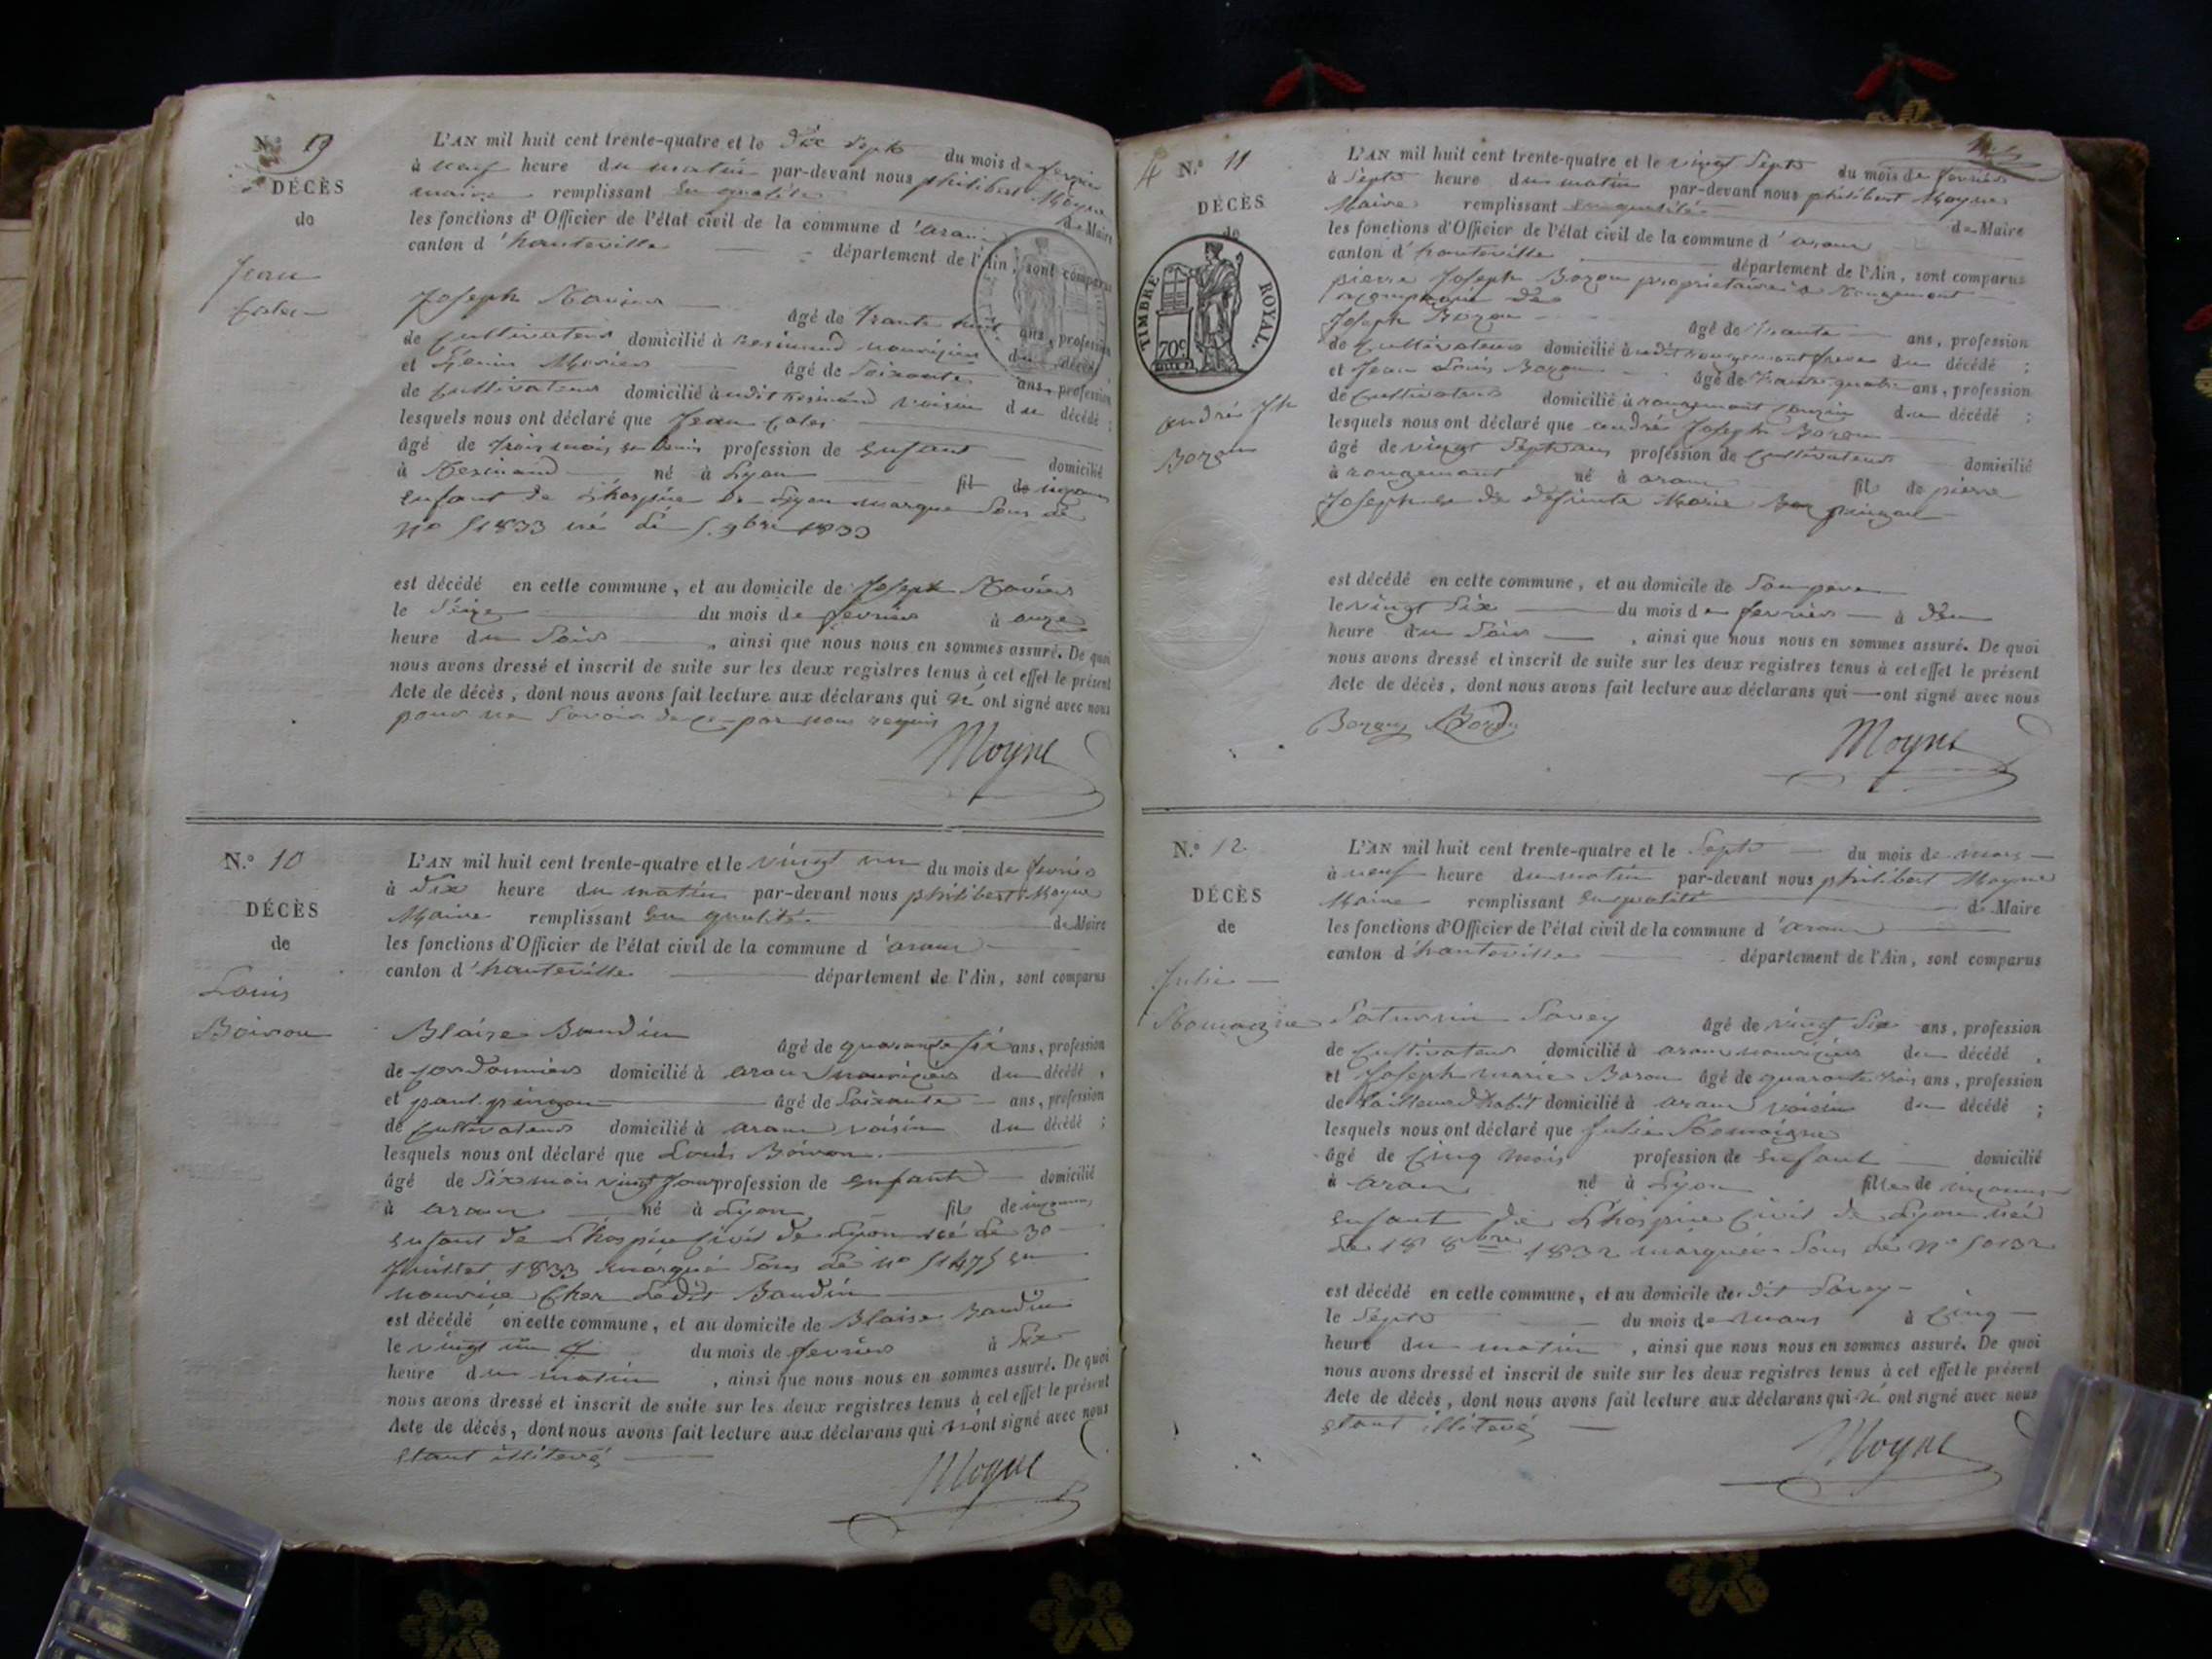 N.° 9
DÉCÈS
de
Jean
L'AN mil huit cent trente-quatre et le dix sept du mois de fevrier
à neuf heure du matin par-devant nous philibert Moyne
maire remplissant en qualité de Maire
les fonctions d'Officier de l'état civil de la commune d'aran
canton d'hauteville département de l'Ain, sont comparus
Joseph Savier âgé de trante huit ans, profession
de cultivateur domicilié à nouricier du décédé,
et âgé de soixante ans, profession
de cultivateur domicilié à audit voisin du décédé ;
lesquels nous ont déclaré que Jean
âgé de trois mois profession de enfant domicilié
à né à Lyon fils de
enfant de L'hospice de Lyon marque sous le
né le 5 9bre 1833
est décédé en cette commune, et au domicile de Joseph Savier
le seize du mois de fevrier à onze
heure du soir, ainsi que nous nous en sommes assuré. De quoi
nous avons dressé et inscrit de suite sur les deux registres tenus à cet effet le présent
Acte de décès, dont nous avons fait lecture aux déclarans qui n'ont signé avec nous
pour ne savoir de ce par nous requis
Moyne
N.° 10
DÉCÈS
de
Louis
Boivon
L'AN mil huit cent trente-quatre et le vingt un du mois de fevrier
à dix heure du matin par-devant nous philibert Moyne
Maire remplissant en qualité de Maire
les fonctions d'Officier de l'état civil de la commune d'aran
canton d'hauteville département de l'Ain, sont comparus
Blaise Baudin âgé de quarante six ans, profession
de cordonnier domicilié à aran nouricier du décédé,
et paul pingon âgé de soixante ans, profession
de cultivateur domicilié à aran voisin du décédé ;
lesquels nous ont déclaré que Louis Boivon
âgé de six mois vingt jour profession de enfant domicilié
à aran né à Lyon fils de
enfant de L'hospice civil de Lyon né le 30
Juillet 1833 marqué sous le n° 51475 en
nourrice chez Ledit Baudin
est décédé en cette commune, et au domicile de Blaise Baudin
le vingt un du mois de fevrier à six
heure du matin, ainsi que nous nous en sommes assuré. De quoi
nous avons dressé et inscrit de suite sur les deux registres tenus à cet effet le présent
Acte de décès, dont nous avons fait lecture aux déclarans qui n'ont signé avec nous
etant illiteré
Moyne
4 N.° 11
DÉCÈS
de
TIMBRE ROYAL.
70c
andré Jh
Bozon
L'AN mil huit cent trente-quatre et le vingt sept du mois de fevrier
à sept heure du matin par-devant nous philibert Moyne
Maire remplissant en qualité de Maire
les fonctions d'Officier de l'état civil de la commune d'aran
canton d'hauteville département de l'Ain, sont comparus
pierre Joseph Bozon propriétaire à Rougemont
accompagné de
Joseph Bozon âgé de trante ans, profession
de cultivateur domicilié à audit rougemont frere du décédé ;
et Jean Louis Bozon âgé de trante quatre ans, profession
de cultivateur domicilié à rougemont couzin du décédé ;
lesquels nous ont déclaré que andré Joseph Bozon
âgé de vingt sept ans profession de cultivateur domicilié
à rougemont né à aran fils de pierre
Joseph et de defunte Marie pingon
est décédé en cette commune, et au domicile de son pere
le vingt six du mois de fevrier à
heure du soir, ainsi que nous nous en sommes assuré. De quoi
nous avons dressé et inscrit de suite sur les deux registres tenus à cet effet le présent
Acte de décès, dont nous avons fait lecture aux déclarans qui ont signé avec nous
Bozon Bozon
Moyne
N.° 12
DÉCÈS
de
Julie
Romaigne
L'AN mil huit cent trente-quatre et le sept du mois de mars
à neuf heure du matin par-devant nous philibert Moyne
Maire remplissant en qualité de Maire
les fonctions d'Officier de l'état civil de la commune d'aran
canton d'hauteville département de l'Ain, sont comparus
Saturnin Savey âgé de vingt six ans, profession
de cultivateur domicilié à aran nouricier du décédé,
et Joseph marie Bozon âgé de quarante trois ans, profession
de tailleur d'habit domicilié à aran voisin du décédé ;
lesquels nous ont déclaré que Julie Romaigne
âgé de cinq mois profession de enfant domicilié
à aran né à Lyon fille de
enfant de L'hospice civil de Lyon née
le 18 8bre 1832 marquée sous le n° 50132
est décédé en cette commune, et au domicile de dit Savey
le sept du mois de mars à cinq
heure du matin, ainsi que nous nous en sommes assuré. De quoi
nous avons dressé et inscrit de suite sur les deux registres tenus à cet effet le présent
Acte de décès, dont nous avons fait lecture aux déclarans qui n'ont signé avec nous
etant illiteré
Moyne